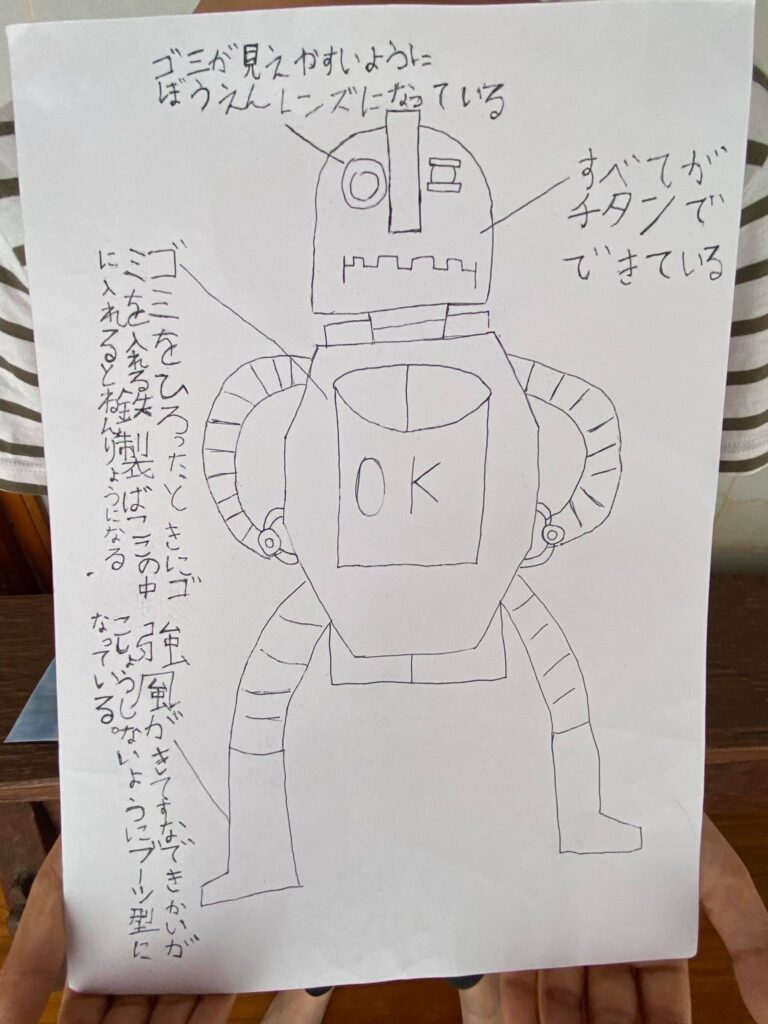 ゴミが見えやすいように
ぼうえんレンズになっている
すべてが
チタンで
できている
ゴミをひろったときにゴ
ミを入れる鉄製ばここの中
に入れるとねんりょうになる
OK
強風がきてすなできかいが
こしょうしないようにブーツ型に
なっている。